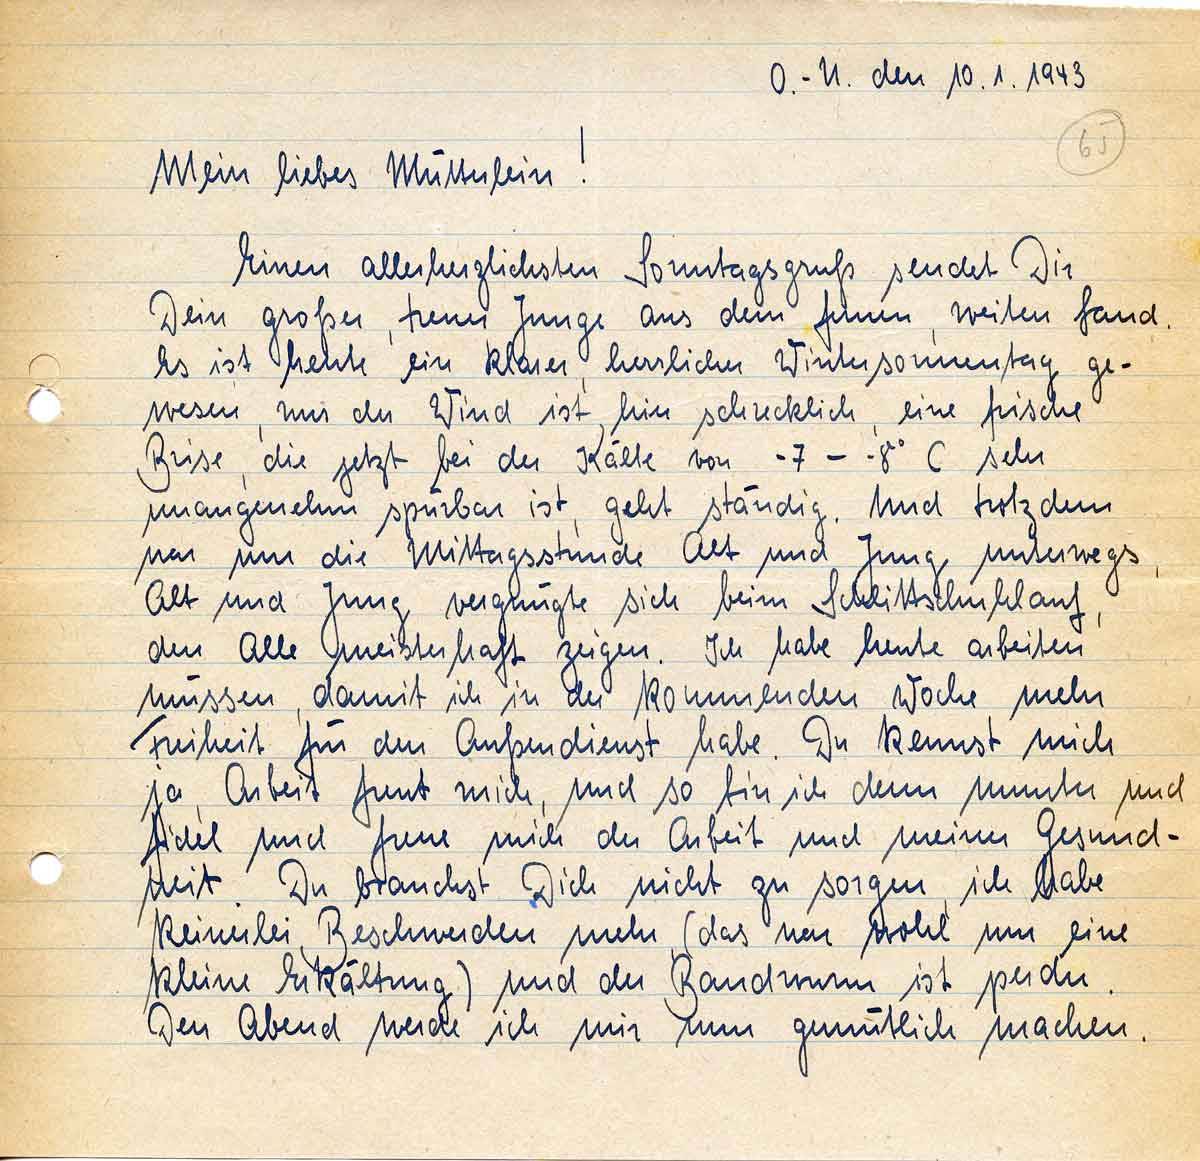 O.-U. den 10.1.1943
65
Mein liebes Mütterlein!
Einen allerherzlichsten Sonntagsgruß sendet Dir
Dein großer, treuer Junge aus dem fernen, weiten Land.
Es ist heute ein klarer, herrlicher Wintersonnentag ge-
wesen, nur der Wind ist hier schrecklich, eine frische
Brise, die jetzt bei der Kälte von -7 – -8° C sehr
unangenehm spürbar ist, geht ständig. Und trotzdem
war um die Mittagsstunde Alt und Jung unterwegs,
Alt und Jung vergnügte sich beim Schlittschuhlauf,
den Alle meisterhaft zeigen. Ich habe heute arbeiten
müssen, damit ich in der kommenden Woche mehr
Freiheit für den Außendienst habe. Du kennst mich
ja, Arbeit freut mich, und so bin ich denn munter und
fidel und freue mich der Arbeit und meiner Gesund-
heit. Du brauchst Dich nicht zu sorgen, ich habe
keinerlei Beschwerden mehr, (das war wohl nur eine
kleine Erkältung) und der Bandwurm ist perdu.
Den Abend werde ich mir nun gemütlich machen.